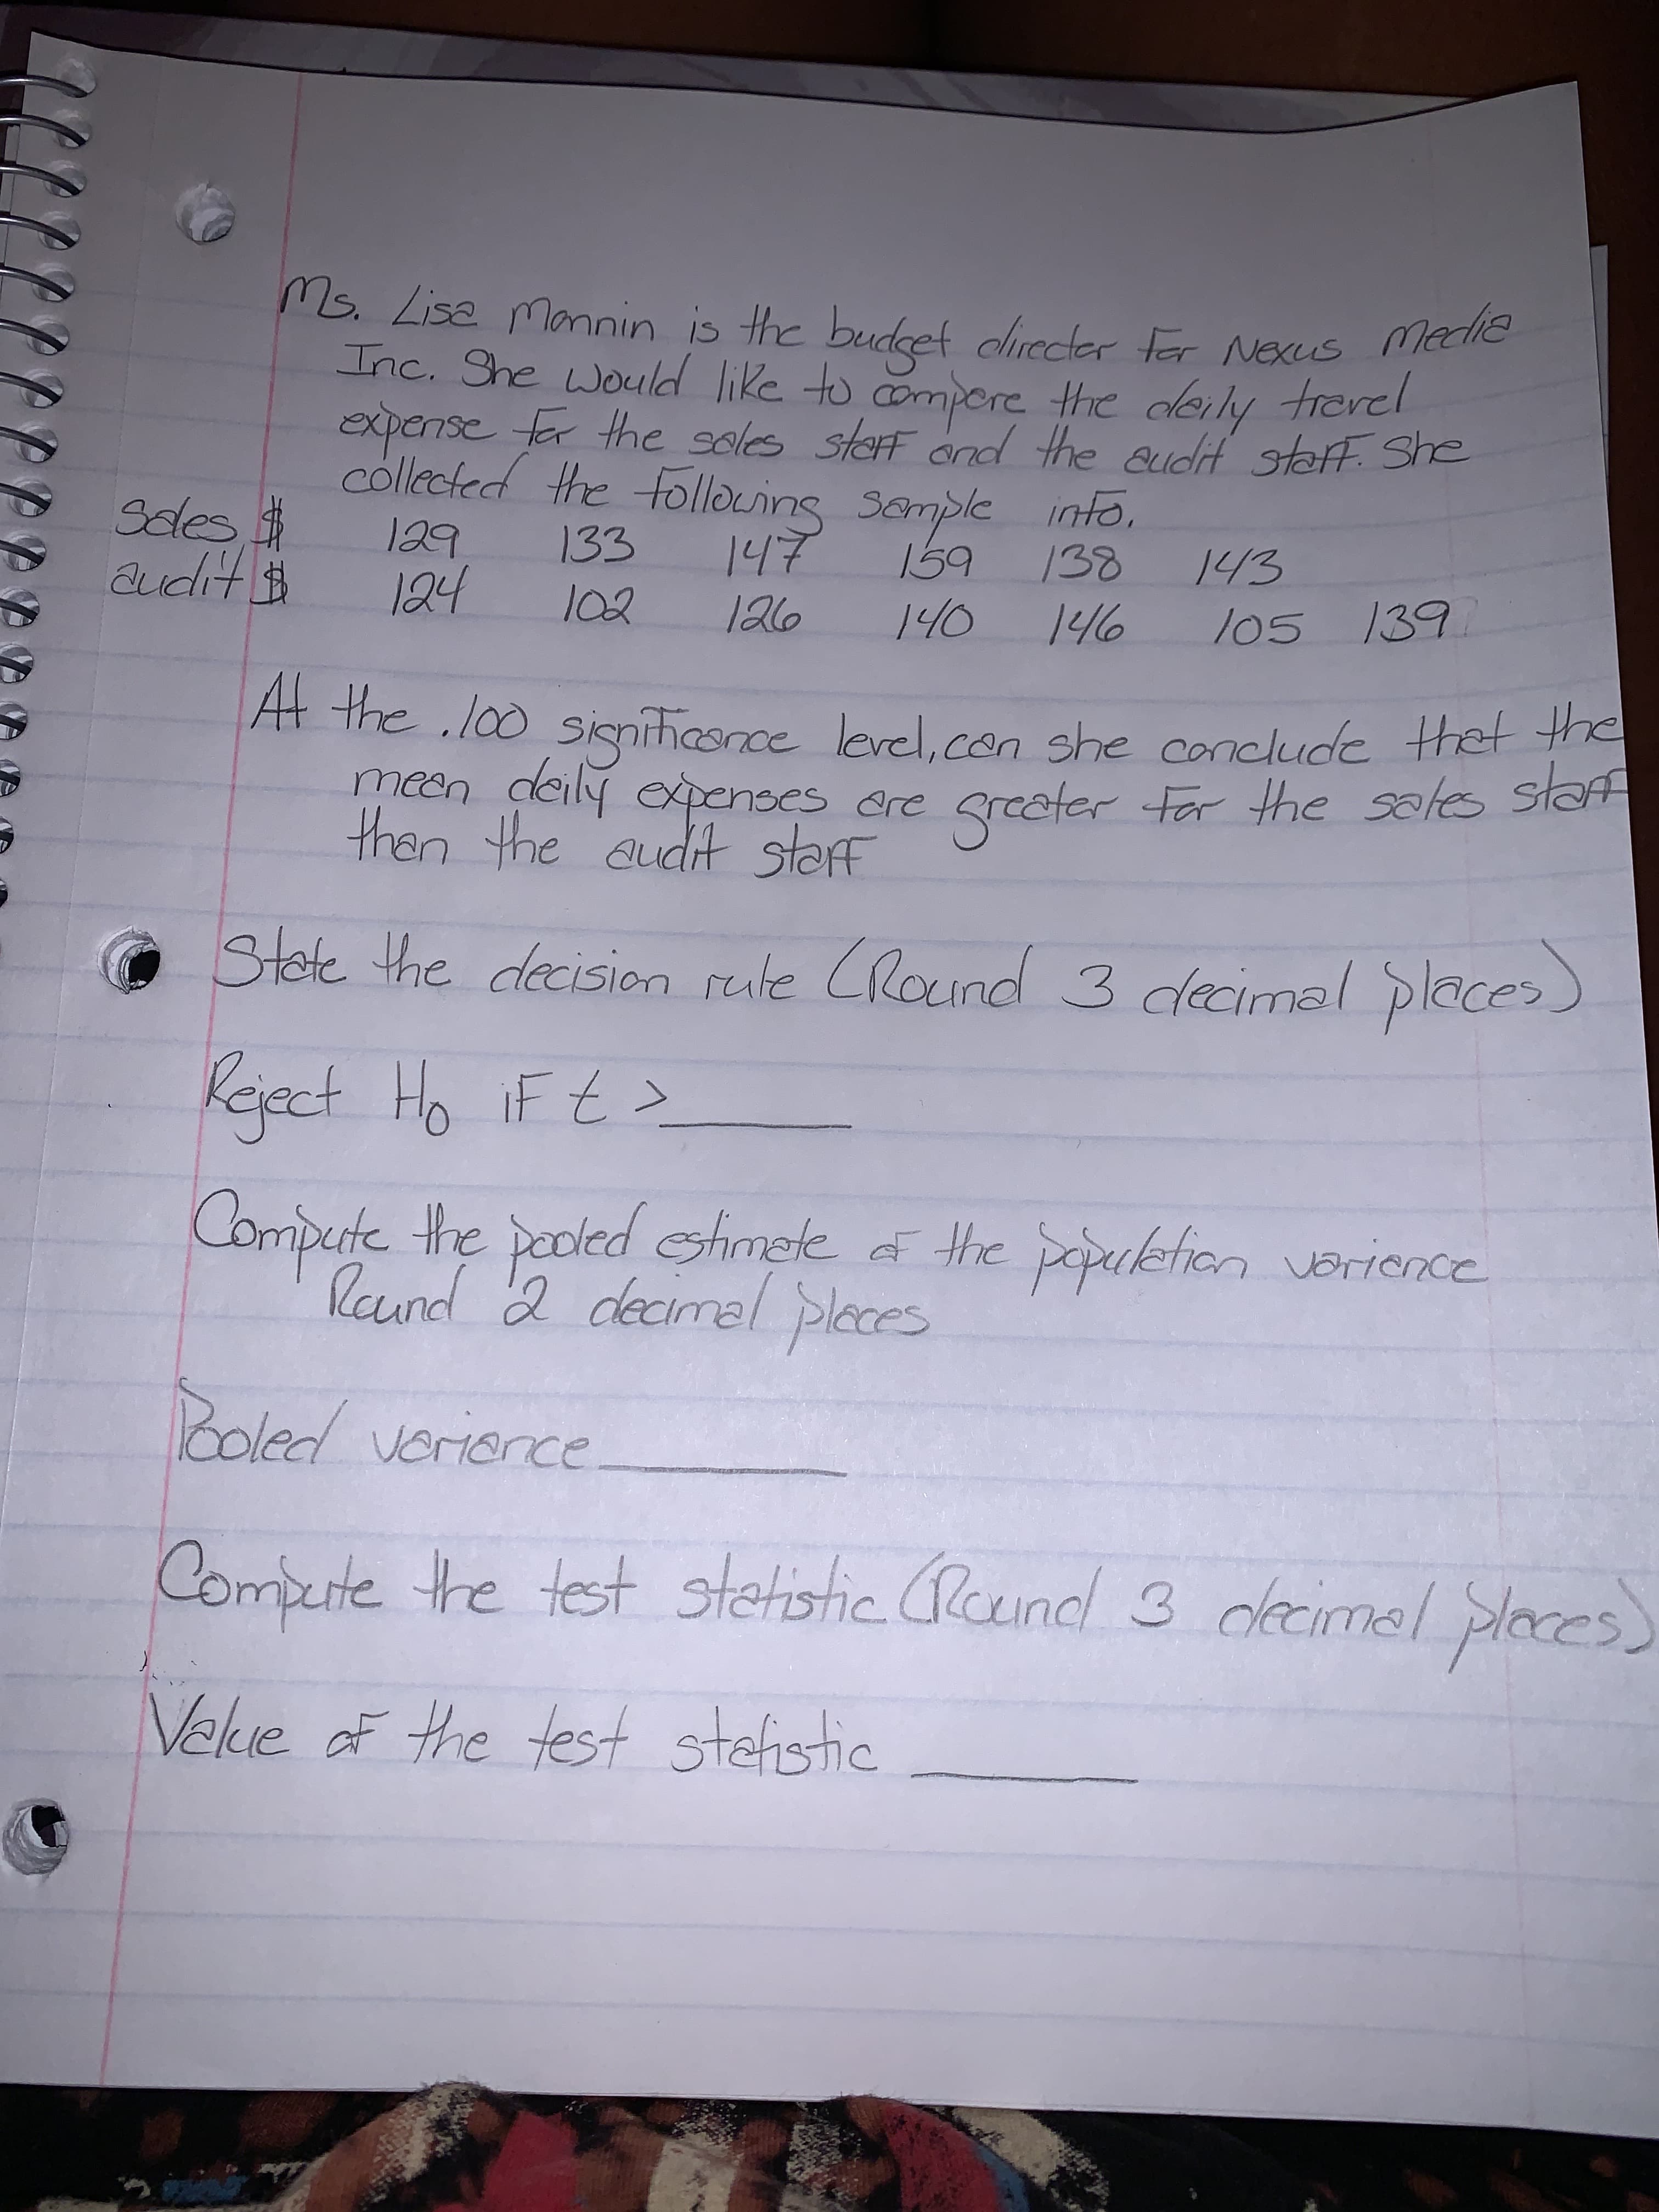 Ms. Lisa Mannin is the budget director for Nexus Media
Inc. She would like to compare the daily travel
expense for the sales staff and the audit staff. She
collected the following sample info.
sales $ 129 133 147 159 138 143
audit $ 124 102 126 140 146 105 139
At the .100 significance level, can she conclude that the
mean daily expenses are greater for the sales staff
than the audit staff
State the decision rule (Round 3 decimal places)
Reject H0 if t > ____
Compute the pooled estimate of the population varience
Round 2 decimal places
Pooled varience ____
Compute the test statistic (Round 3 decimal places)
Value of the test statistic ____